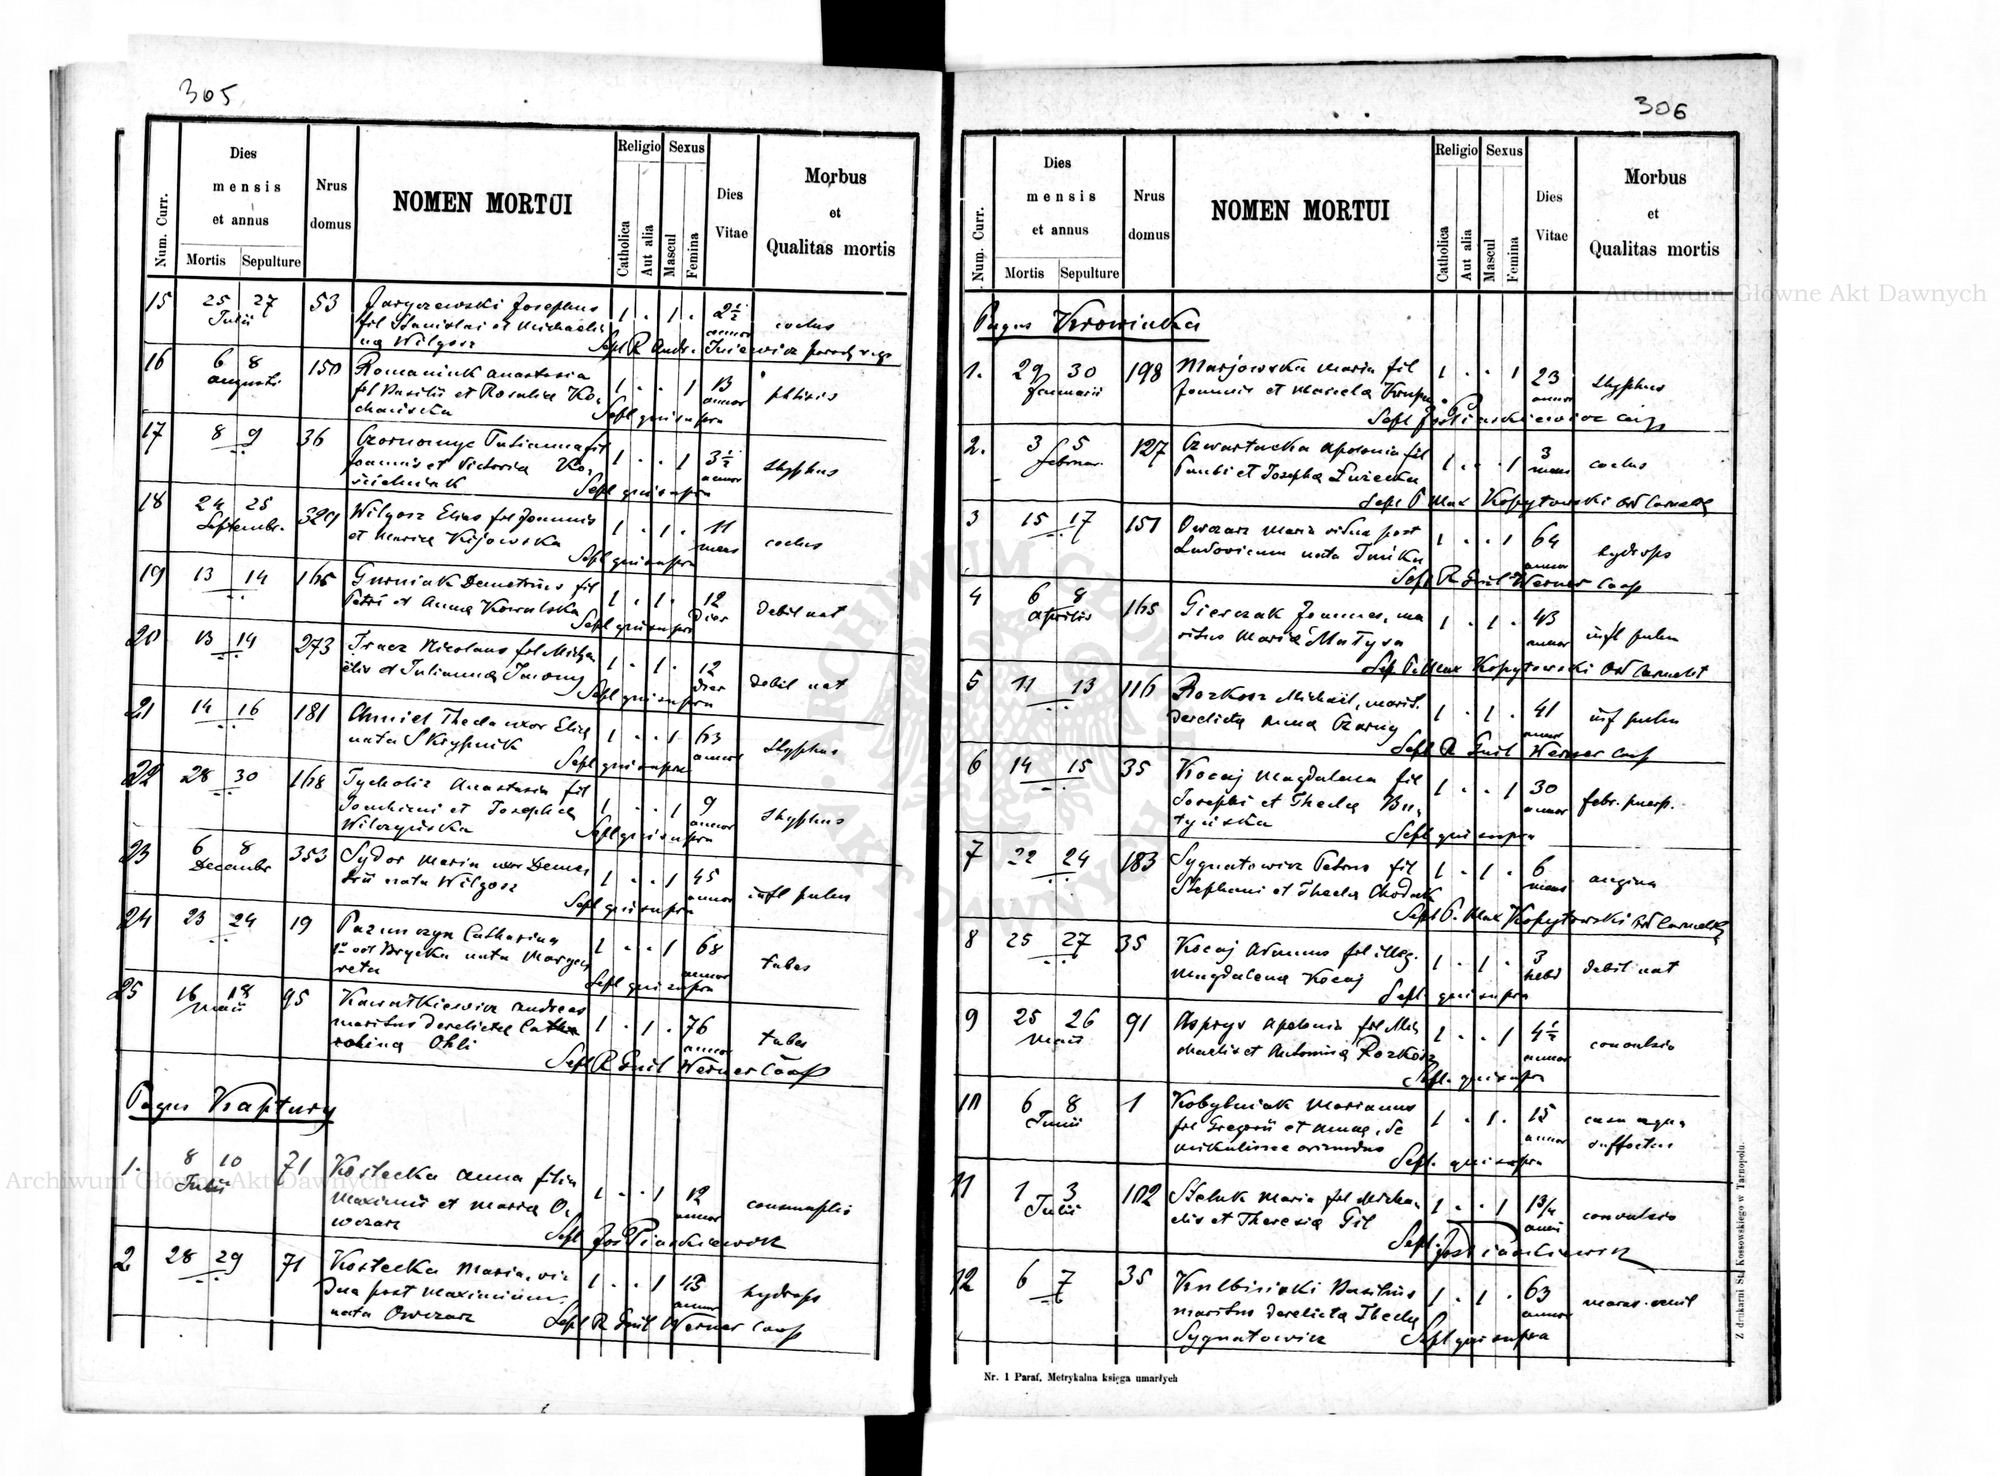 305
Num. Curr.
Dies
mensis
et annus
Mortis
Sepulture
Nrus
domus
NOMEN MORTUI
Religio
Catholica
Aut alia
Sexus
Mascul
Femina
Dies
Vitae
Morbus
et
Qualitas mortis
15 25 27 53 Josephus 1 . 1 . 2½
Julii fil Stanislai et Michaeli annor coctus
na Wilgosz Sepl R Andr.
16 6 8 150 Romaniuk Anastasia 1 . . 1 13
Augusti fil Basilii et Rosalia Ko annor phtisis
Sepl qui supra
17 8 9 36 Julianna fil 1 . . 1 3½
Joannis et Victoria Ko annor thyphus
Sepl qui supra
18 24 25 329 Wilgosz Elias fil Joannis 1 . 1 . 11
Septembr. et Maria Kijowska mens coctus
Sepl qui supra
19 13 14 165 Gurniak Demetrius fil 1 . 1 . 12
Petri et Anna Kowalska dier debil nat
Sepl qui supra
20 13 14 273 Tracz Nicolaus fil Micha 1 . 1 . 12
elis et Julianna dier debil nat
Sepl qui supra
21 14 16 181 Thecla uxor Elia 1 . . 1 63
nata Skrypnik annor thyphus
Sepl qui supra
22 28 30 168 Anastasia fil 1 . . 1 9
Joachimi et Josepha annor thyphus
Sepl qui supra
23 6 8 353 Sydor Maria uxor Deme 1 . . 1 45
Decembr trii nata Wilgosz annor infl pulm
Sepl qui supra
24 23 24 19 Catharina 1 . . 1 68
nata Marga annor tabes
reta Sepl qui supra
25 16 18 95 Andreas 1 . 1 . 76
Maii maritus derelicta Catha annor tabes
rina Ohli Sepl R Guil Werner Coop
Pagus Kaptury
1. 8 10 71 Kostecka Anna filia 1 . . 1 12
Julii Maximii et Maria O annor consumptio
wczarz Sepl Jos Piaskiewicz
2 28 29 71 Kostecka Maria, vi 1 . . 1 43
dua post Maximium annor hydrops
nata Owczarz Sepl R Guil Werner Coop
306
Num. Curr.
Dies
mensis
et annus
Mortis
Sepulture
Nrus
domus
NOMEN MORTUI
Religio
Catholica
Aut alia
Sexus
Mascul
Femina
Dies
Vitae
Morbus
et
Qualitas mortis
Pagus Krowinka
1. 29 30 198 Marjowska Maria fil 1 . . 1 23
Januarii Joannis et Marcela annor thyphus
Sepl Jos Piaskiewicz
2. 3 5 127 Czwartacka Apolonia fil 1 . . 1 3
Februar. Pauli et Josepha mens coctus
Sepl P Max Kopytowski Ord Carmelit
3 15 17 151 Owczarz Maria vidua post 1 . . 1 64
Ludovicum nata annor hydrops
Sepl R Guil Werner Coop
4 6 8 165 Gierczak Joannes, ma 1 . 1 . 43
Aprilis ritus Maria Matysa annor infl pulm
Sep P. Max Kopytowski Ord Carmelit
5 11 13 116 Rozkosz Michael, marit. 1 . 1 . 41
derelicta Anna Czarny annor inf pulm
Sepl R Guil Werner Coop
6 14 15 35 Kocaj Magdalena fil 1 . . 1 30
Josephi et Thecla Bu annor febr. puerp.
tyńska Sepl qui supra
7 22 24 183 Sygnatowicz Petrus fil 1 . 1 . 6
Stephani et Thecla Chodak mens angina
Sepl P. Max Kopytowski Ord Carmelit
8 25 27 35 Kocaj Adamus fil illeg. 1 . 1 . 3
Magdalena Kocaj hebd debil nat
Sepl. qui supra
9 25 26 91 Apolonia fil Mi 1 . . 1 4½
Maii chaelis et Antonina Rozkosz annor convulsio
Sepl. qui supra
10 6 8 1 Kobylniak Marianus 1 . 1 . 15
Junii fil Gregorii et Anna, de annor casu aqua
Mikulince oriundus suffoctus
Sepl. qui supra
11 1 3 102 Maria fil Micha 1 . . 1 1¾
Julii elis et Theresia Gil anni convulsio
Sepl. Jos Piaskiewicz
12 6 7 35 Basilius 1 . 1 . 63
maritus derelicta Thecla annor maras. senil
Sygnatowicz Sepl qui supra
Nr. 1 Paraf. Metrykalna księga umarłych
Z drukarni St. Kossowskiego w Tarnopolu.
Archiwum Główne Akt Dawnych
Archiwum Główne Akt Dawnych
ARCHIWUM GŁÓWNE AKT DAWNYCH